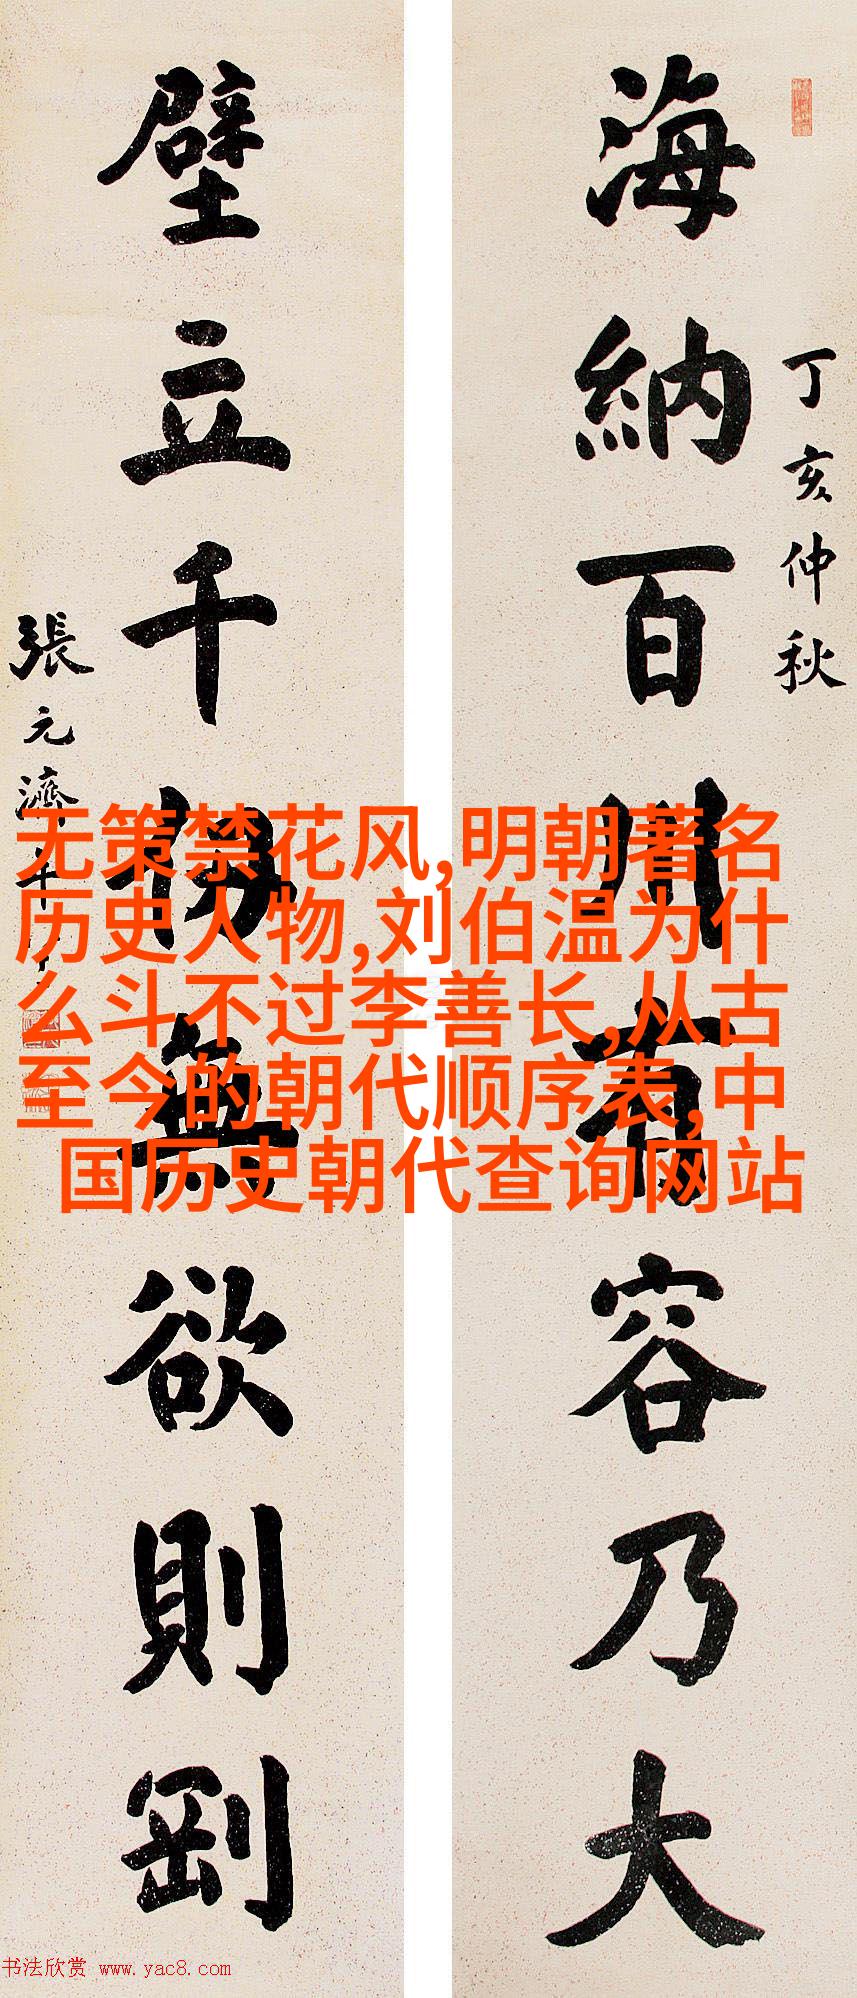 海納百川有容乃大
丁亥仲秋
壁立千仞無欲則剛
張元濟
无策禁花风,明朝著名
历史人物,刘伯温为什
么斗不过李善长,从古
至今的朝代顺序表,中
国历史朝代查询网站
书法欣赏 www.yac8.com